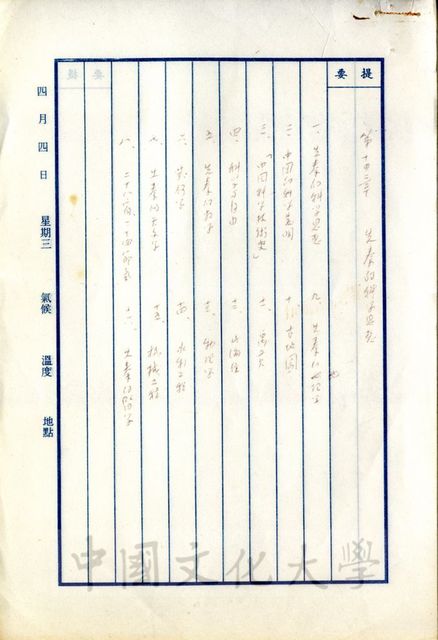 提要
第十三章 先秦的科學思想
一、先秦的科學思想
九、先秦的地理學
二、中國的科學
十、古地圖
三、「中國科學技術史」
十一、禹貢
四、科學與自由
十二、山海經
五、先秦的數學
十三、物理學
六、
十四、水利工程
七、先秦的天文學
十五、機械工程
八、二十八宿、二十四節氣
十六、先秦的醫學
四月四日 星期三 氣候 溫度 地點
中國文化大學